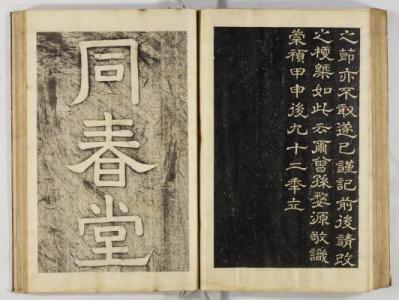 之節亦不敢遂已謹記前後請改
之梗槩如此云爾曾孫婺源敬識
崇禎甲申後九十二年立
同春堂